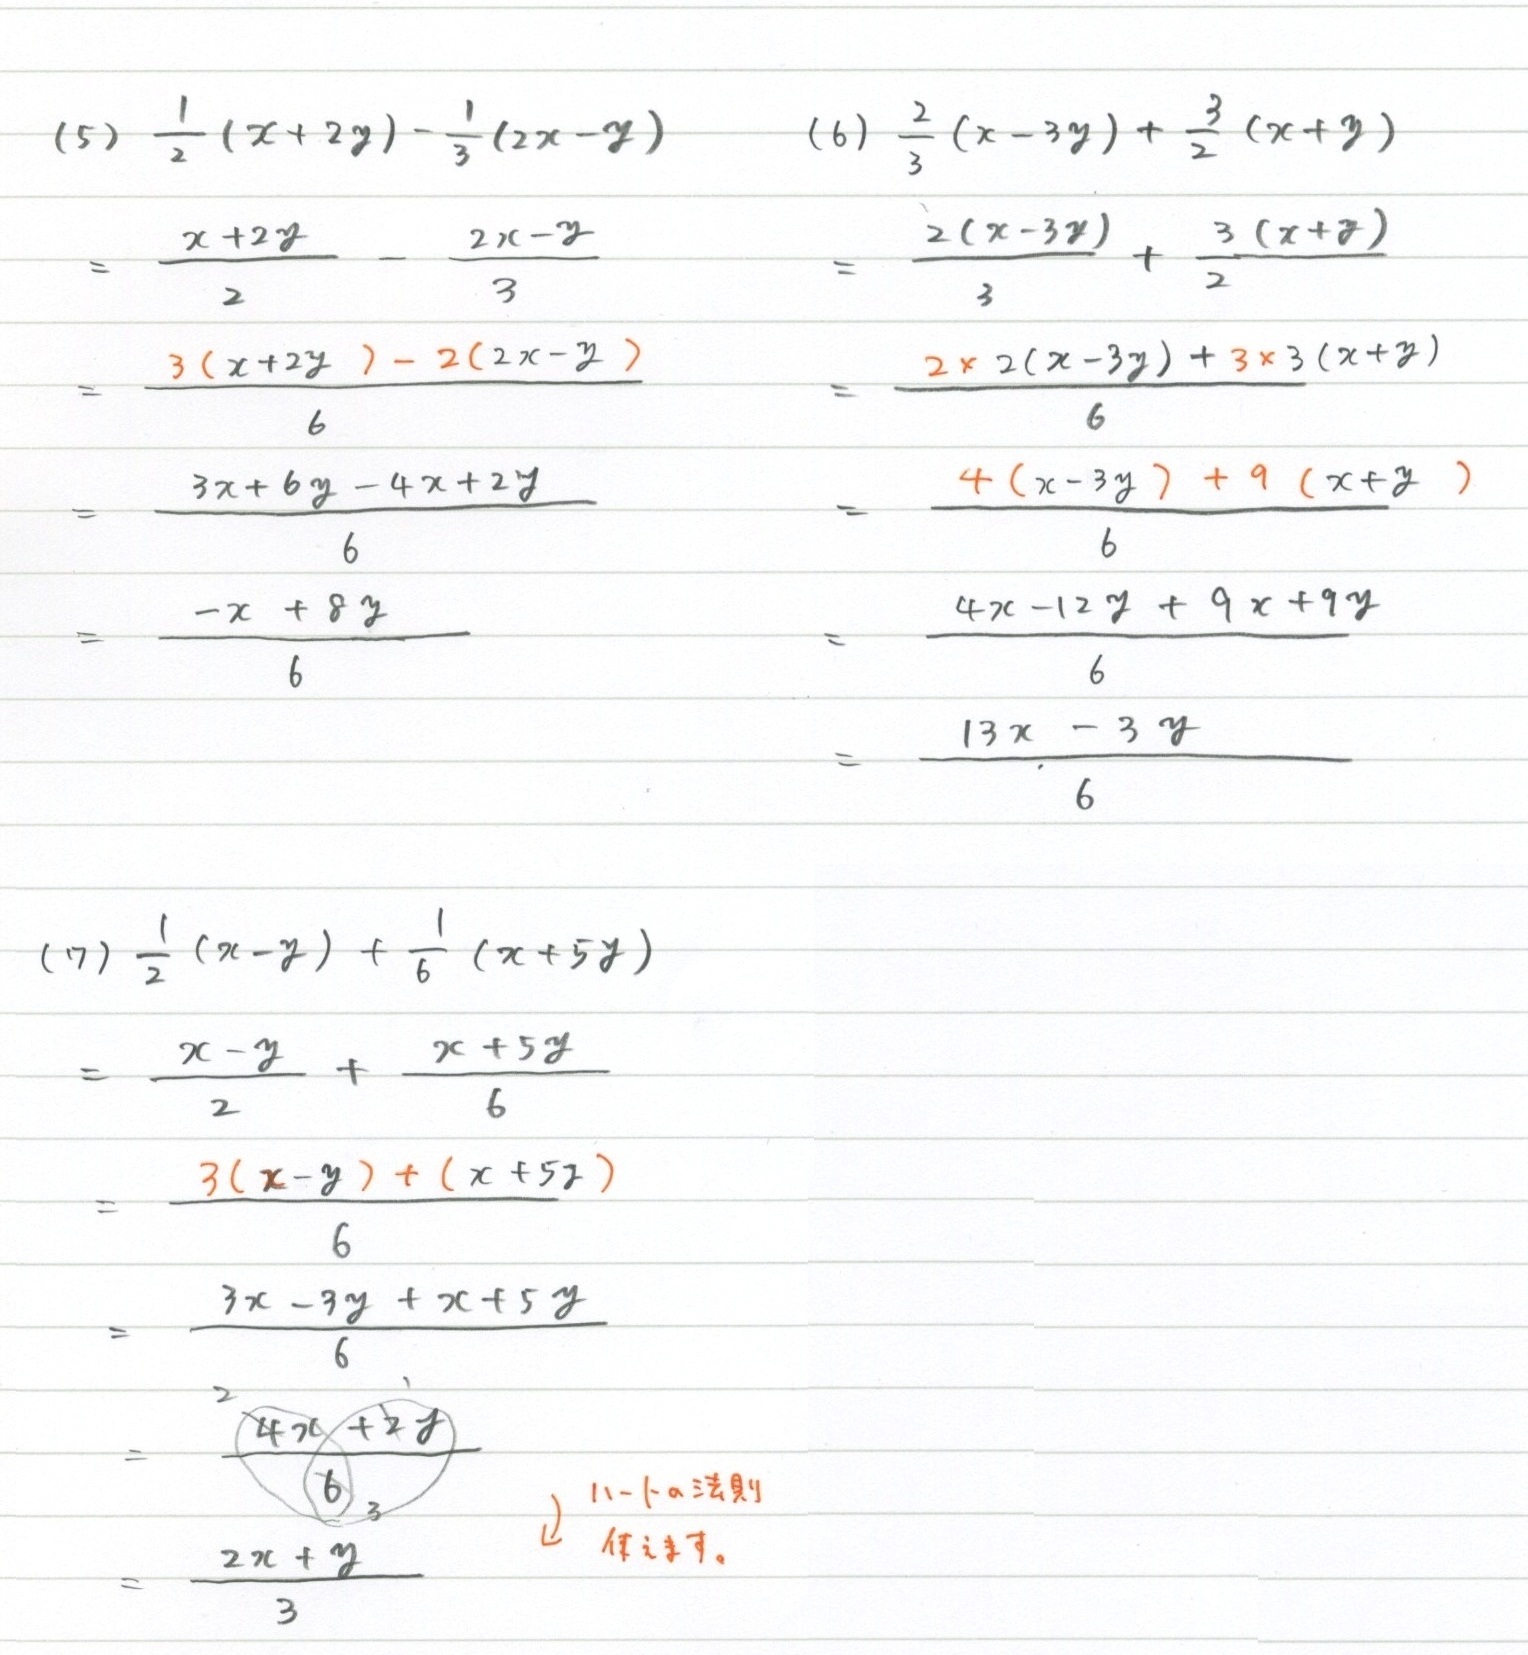 (5) 1/2 (x+2y) - 1/3 (2x-y)
= x+2y/2 - 2x-y/3
= 3(x+2y) - 2(2x-y)/6
= 3x+6y-4x+2y/6
= -x+8y/6
(6) 2/3 (x-3y) + 3/2 (x+y)
= 2(x-3y)/3 + 3(x+y)/2
= 2×2(x-3y)+3×3(x+y)/6
= 4(x-3y)+9(x+y)/6
= 4x-12y+9x+9y/6
= 13x-3y/6
(7) 1/2 (x-y) + 1/6 (x+5y)
= x-y/2 + x+5y/6
= 3(x-y)+(x+5y)/6
= 3x-3y+x+5y/6
2 1
= 4x+2y/6
3
ハートの法則
使えます。
= 2x+y/3